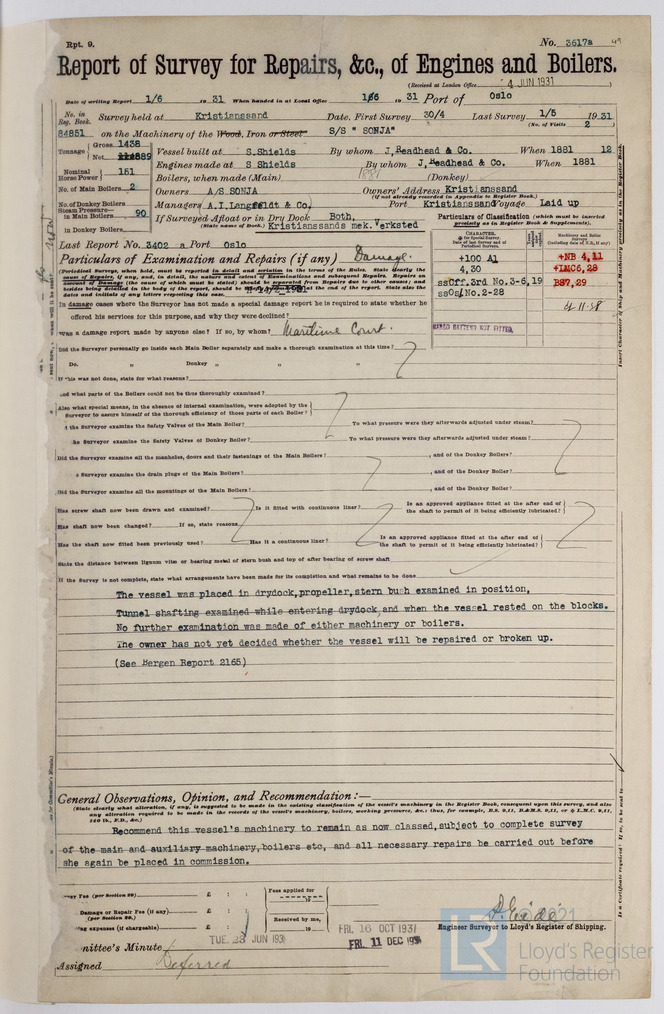 Rpt. 9.
No. 3617a
Report of Survey for Repairs, &c., of Engines and Boilers.
(Received at London Office 4 JUN 1931)
Date of writing Report 1/6 1931 When handed in at Local Office 1/6 1931 Port of Oslo
No. in Reg. Book. Survey held at Kristianssand Date. First Survey 30/4 Last Survey 1/5 1931
(No. of Visits 2)
84851 on the Machinery of the Wood, Iron or Steel S/S " SONJA"
Tonnage Gross 1438
Net 889
Vessel built at S.Shields By whom J,Readhead & Co. When 1881 12
Engines made at S Shields By whom J,Readhead & Co. When 1881
Nominal Horse Power 151
Boilers, when made (Main) 1881 (Donkey)
No. of Main Boilers 2
Owners A/S SONJA Owners' Address Kristianssand
(if not already recorded in Appendix to Register Book.)
No. of Donkey Boilers
Managers A.I.Langfeldt & Co. Port Kristianssand Voyage Laid up
Steam Pressure in Main Boilers 90
If Surveyed Afloat or in Dry Dock Both,
(State name of Dock.) Kristianssands mek.Verksted
in Donkey Boilers
Particulars of Classification (which must be inserted precisely as in Register Book & Supplements).
Last Report No. 3402 a Port Oslo
Particulars of Examination and Repairs (if any) Damage.
+100 A1
4,30
ssOff.3rd No.3-6,19
ssOsl No.2-28
+NB 4,11
+LMC6,28
BS7,29
In damage cases where the Surveyor has not made a special damage report he is required to state whether he
offered his services for this purpose, and why they were declined?
Was a damage report made by anyone else? If so, by whom? Maritime Court.
Did the Surveyor personally go inside each Main Boiler separately and make a thorough examination at this time?
Do. " Donkey " " "
If this was not done, state for what reasons?
And what parts of the Boilers could not be thus thoroughly examined?
Also what special means, in the absence of internal examination, were adopted by the
Surveyor to assure himself of the thorough efficiency of those parts of each Boiler?
the Surveyor examine the Safety Valves of the Main Boiler? To what pressure were they afterwards adjusted under steam?
he Surveyor examine the Safety Valves of Donkey Boiler? To what pressure were they afterwards adjusted under steam?
Did the Surveyor examine all the manholes, doors and their fastenings of the Main Boilers? , and of the Donkey Boilers?
e Surveyor examine the drain plugs of the Main Boilers? , and of the Donkey Boiler?
Did the Surveyor examine all the mountings of the Main Boilers? , and of the Donkey Boiler?
Has screw shaft now been drawn and examined? Is it fitted with continuous liner? Is an approved appliance fitted at the after end of
the shaft to permit of it being efficiently lubricated?
Has shaft now been changed? If so, state reasons
Has the shaft now fitted been previously used? Has it a continuous liner? Is an approved appliance fitted at the after end of
the shaft to permit of it being efficiently lubricated?
State the distance between lignum vitæ or bearing metal of stern bush and top of after bearing of screw shaft
If the Survey is not complete, state what arrangements have been made for its completion and what remains to be done
The vessel was placed in drydock,propeller,stern bush examined in position,
Tunnel shafting examined while entering drydock,and when the vessel rested on the blocks.
No further examination was made of either machinery or boilers.
The owner has not yet decided whether the vessel will be repaired or broken up.
(See Bergen Report 2165)
General Observations, Opinion, and Recommendation:—
(State clearly what alteration, if any, is suggested to be made in the existing classification of the vessel's machinery in the Register Book, consequent upon this survey, and also
any alteration required to be made in the records of the vessel's machinery, boilers, working pressures, &c.: thus, for example, B.S. 9,11, B.&M.S. 9,11, or + L.M.C. 9,11,
140 lb., F.D., &c.)
Recommend this vessel's machinery to remain as now classed,subject to complete survey
of the main and auxiliary machinery,boilers etc, and all necessary repairs be carried out before
she again be placed in commission.
Fee (per Section 29) £ : : Fees applied for
Damage or Repair Fee (if any) £ : :
(per Section 29.)
expenses (if chargeable) £ : : Received by me,
Engineer Surveyor to Lloyd's Register of Shipping.
FRI. 16 OCT 1931
TUE. 23 JUN 1931
FRI. 11 DEC 1931
mittee's Minute
Assigned Deferred
LR
Lloyd's Register
Foundation